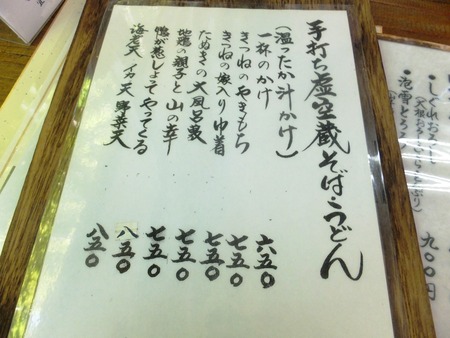 手打ち虚空蔵そば・うどん
(温ったか汁かけ)
一杯のかけ 六五〇
きつねのやきもち 七五〇
きつねの嫁入りゆ着 七五〇
たぬきの大風呂敷 七五〇
地鶏の親子と山の幸 七五〇
鴨が葱しょってやってくる 八五〇
海老天 イカ天 野菜天 八五〇
・しぐれおろし
九〇〇円
・泡雪とろろ